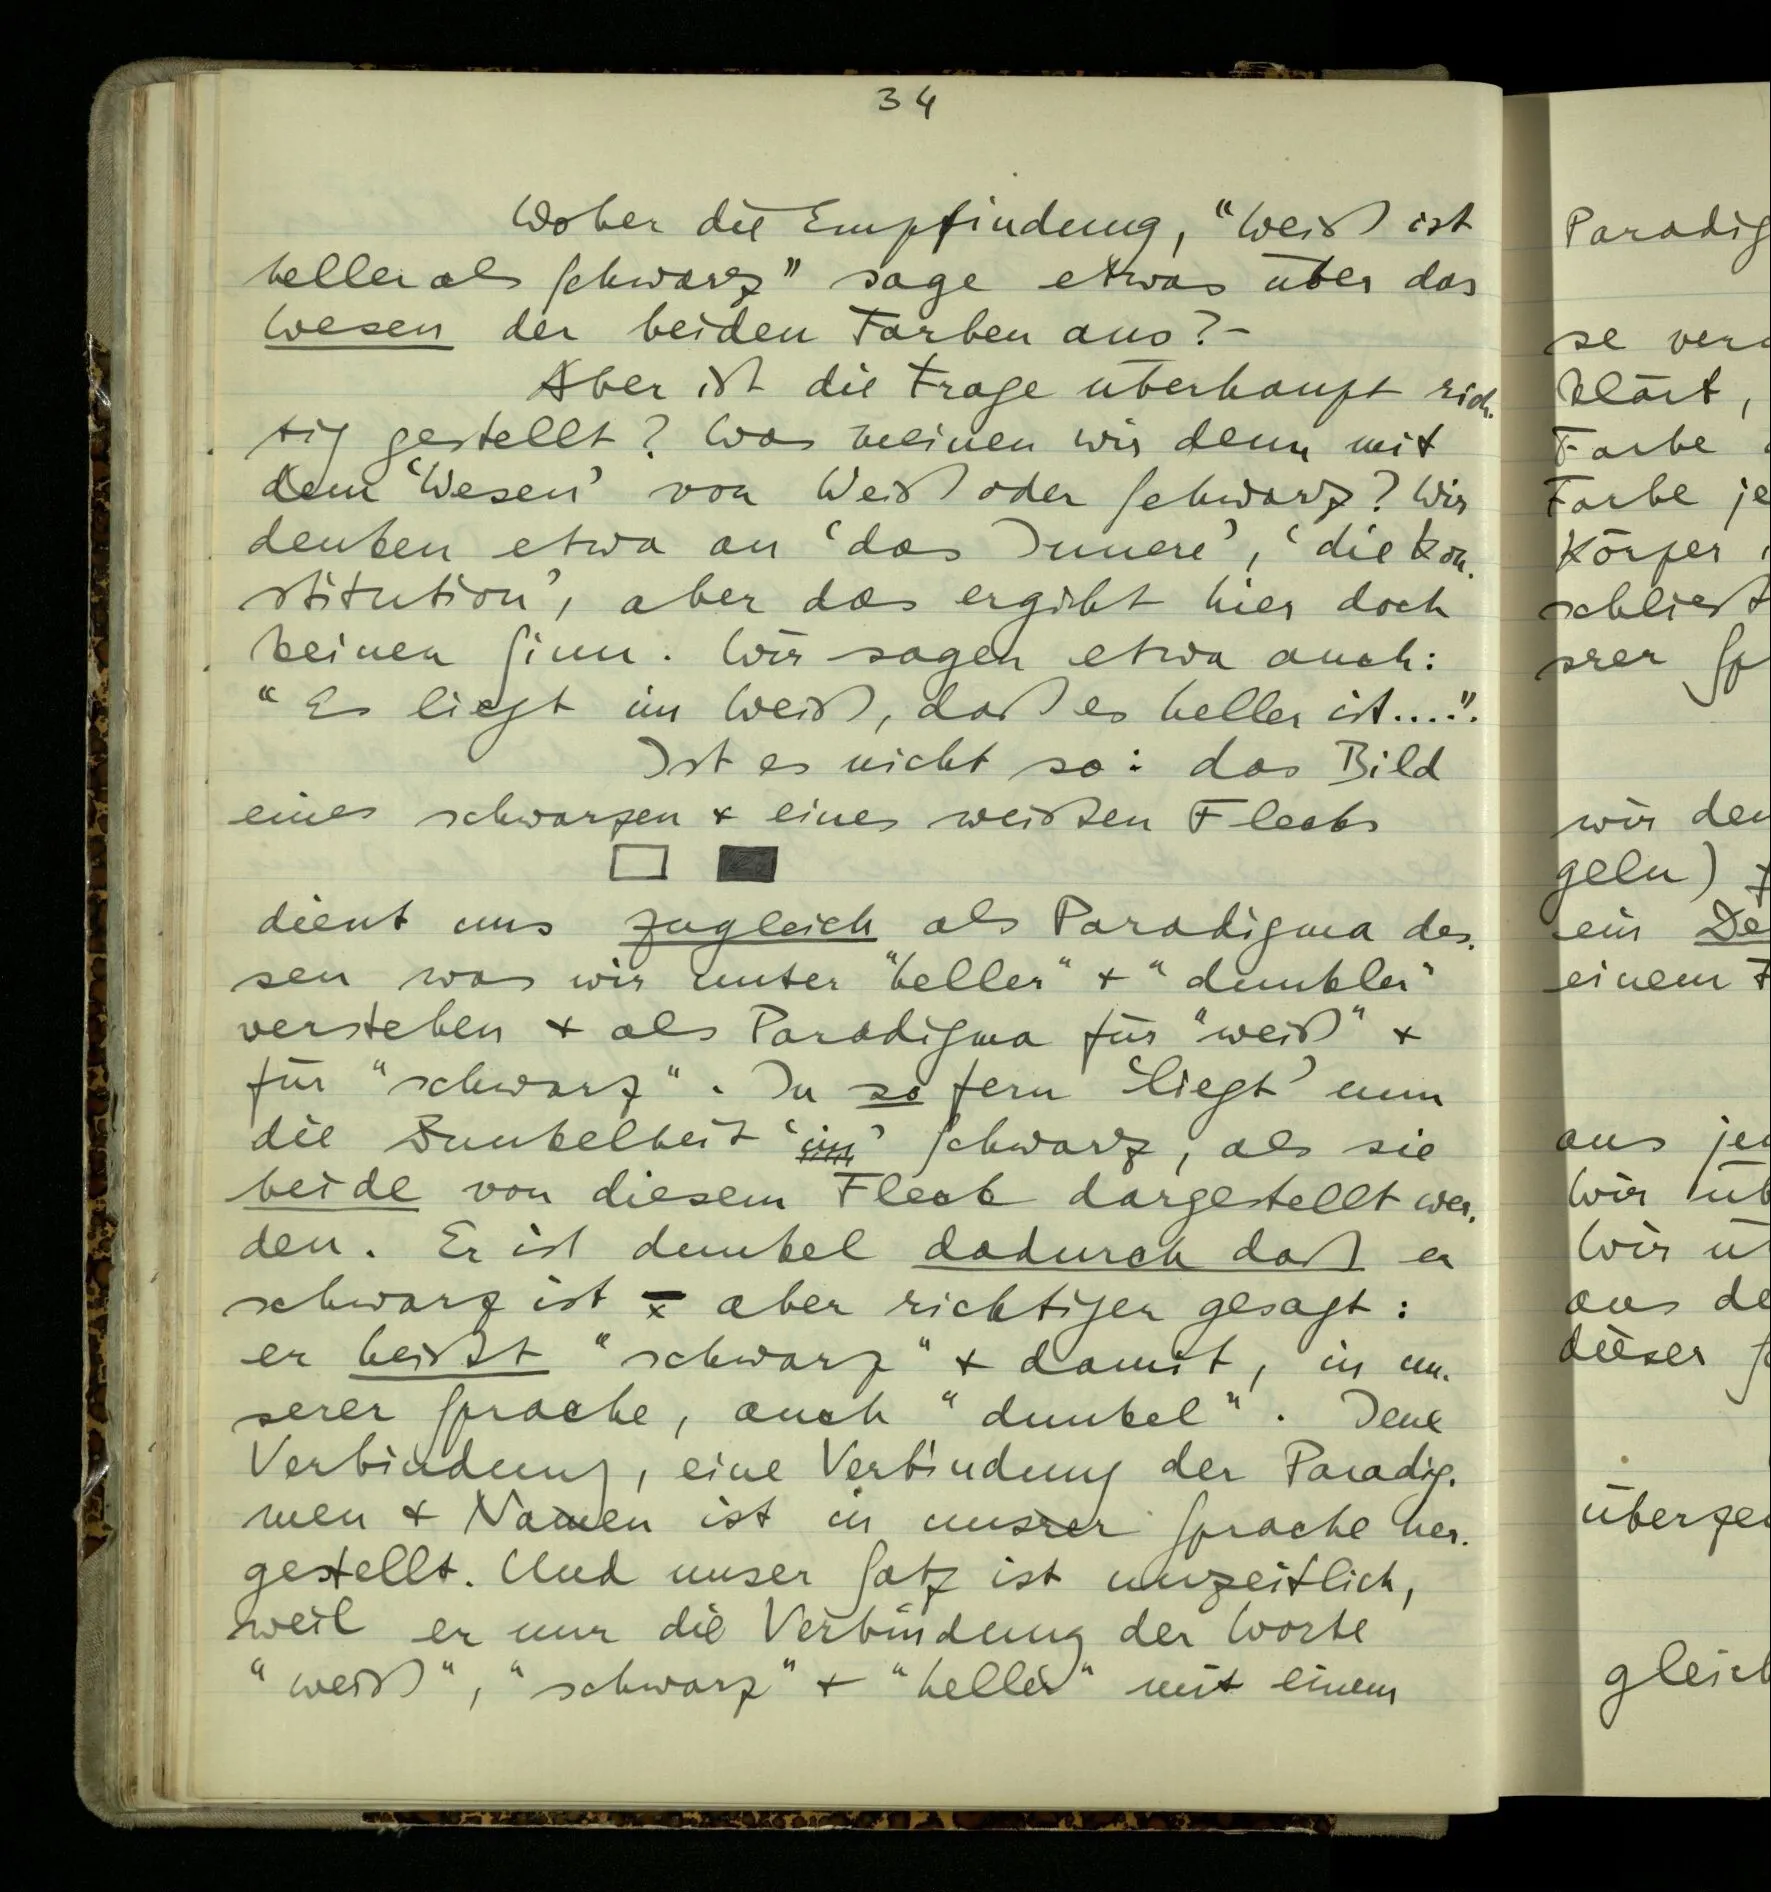 34
Woher die Empfindung, "Weiß ist
heller als Schwarz" sage etwas über das
Wesen der beiden Farben aus? –
Aber ist die Frage überhaupt rich-
tig gestellt? Was meinen wir denn mit
dem 'Wesen' von Weiß oder Schwarz? Wir
denken etwa an 'das Innere', 'die Kon-
stitution', aber das ergibt hier doch
keinen Sinn. Wir sagen etwa auch:
"Es liegt im Weiß, daß es heller ist....".
Ist es nicht so: das Bild
eines schwarzen & eines weißen Flecks
dient uns zugleich als Paradigma des-
sen was wir unter "heller" & "dunkler"
verstehen & als Paradigma für "weiß" &
für "schwarz". In so fern 'liegt' nun
die Dunkelheit 'im' Schwarz, als sie
beide von diesem Fleck dargestellt wer-
den. Er ist dunkel dadurch daß er
schwarz ist – aber richtiger gesagt:
er heißt "schwarz" & damit, in un-
serer Sprache, auch "dunkel". Jene
Verbindung, eine Verbindung der Paradig-
men & Namen ist in unsrer Sprache her-
gestellt. Und unser Satz ist unzeitlich,
weil er nur die Verbindung der Worte
"weiß", "schwarz" & "heller" mit einem
Paradig
se ver
klärt,
Farbe
Farbe je
Körper
schließt
srer Sp
wir den
geln)
ein De
einem
aus je
Wir üb
Wir ü
aus de
dieser
überze
gleich